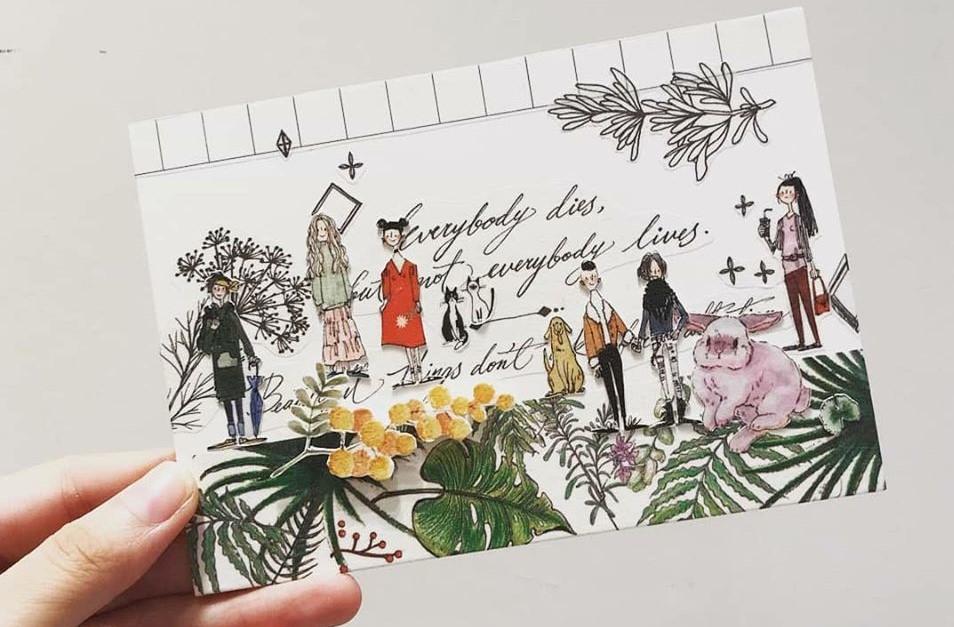 everybody dies,
but not everybody lives.
things don't